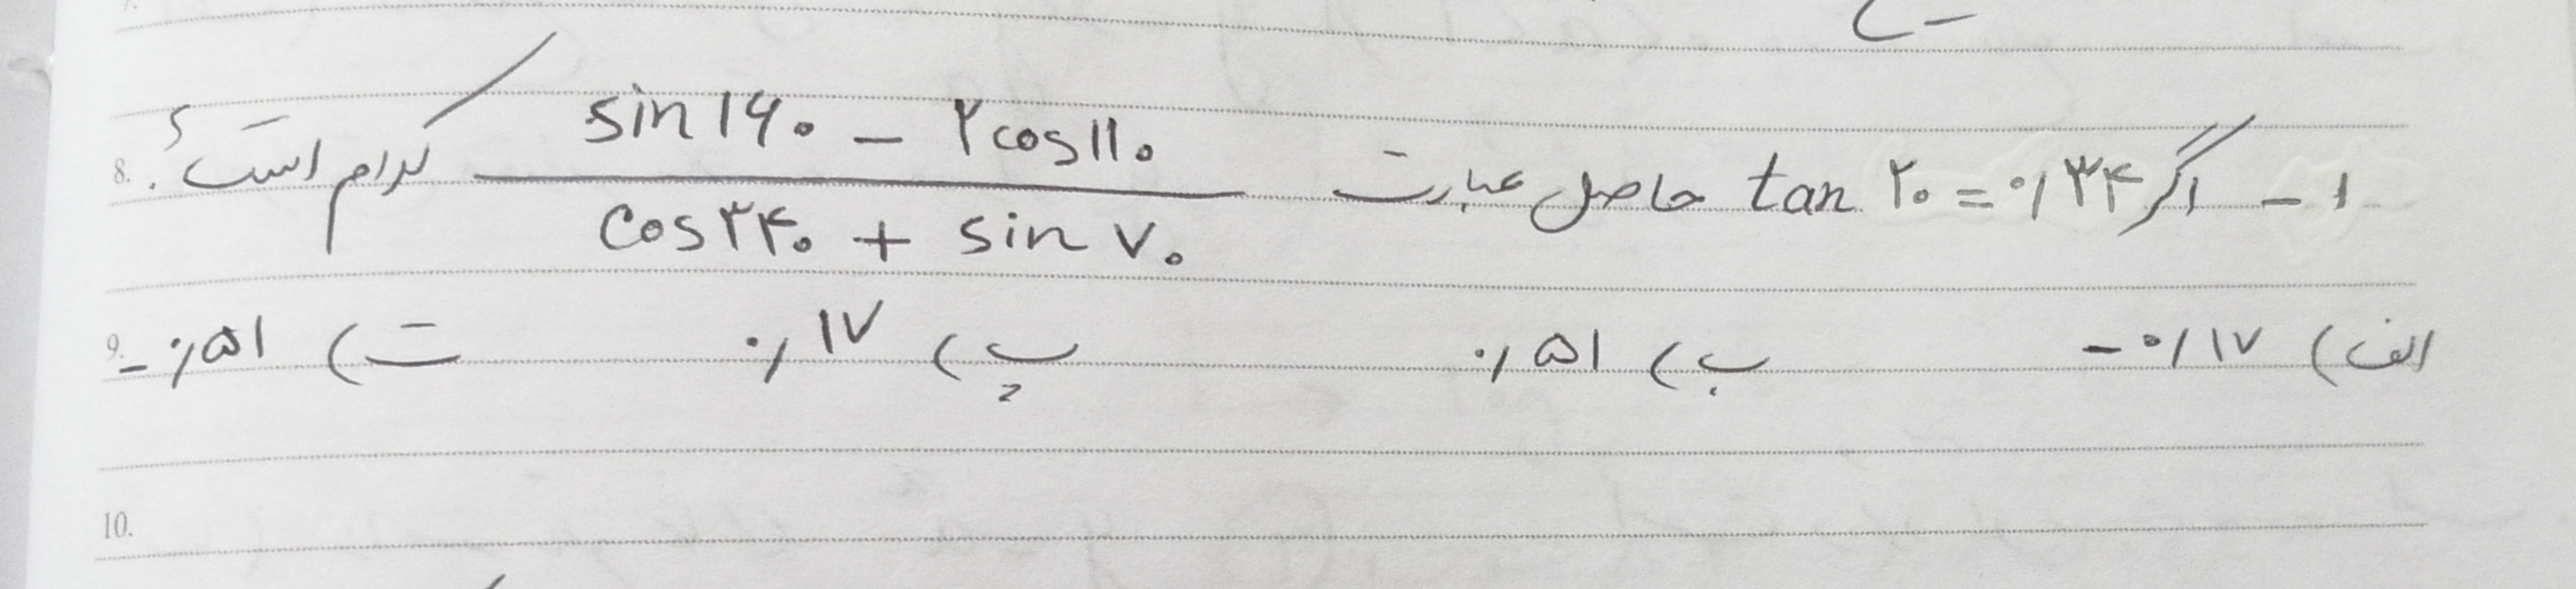 ۱ - اگر tan ۲۰ = ۰/۳۴ حاصل عبارت (sin ۱۶۰ - ۲cos ۱۱۰) / (cos ۳۴۰ + sin ۷۰) کدام است؟
8.
الف) ۰/۱۷- ب) ۰/۵۱ پ) ۰/۱۷ ت) ۰/۵۱-
9.
10.